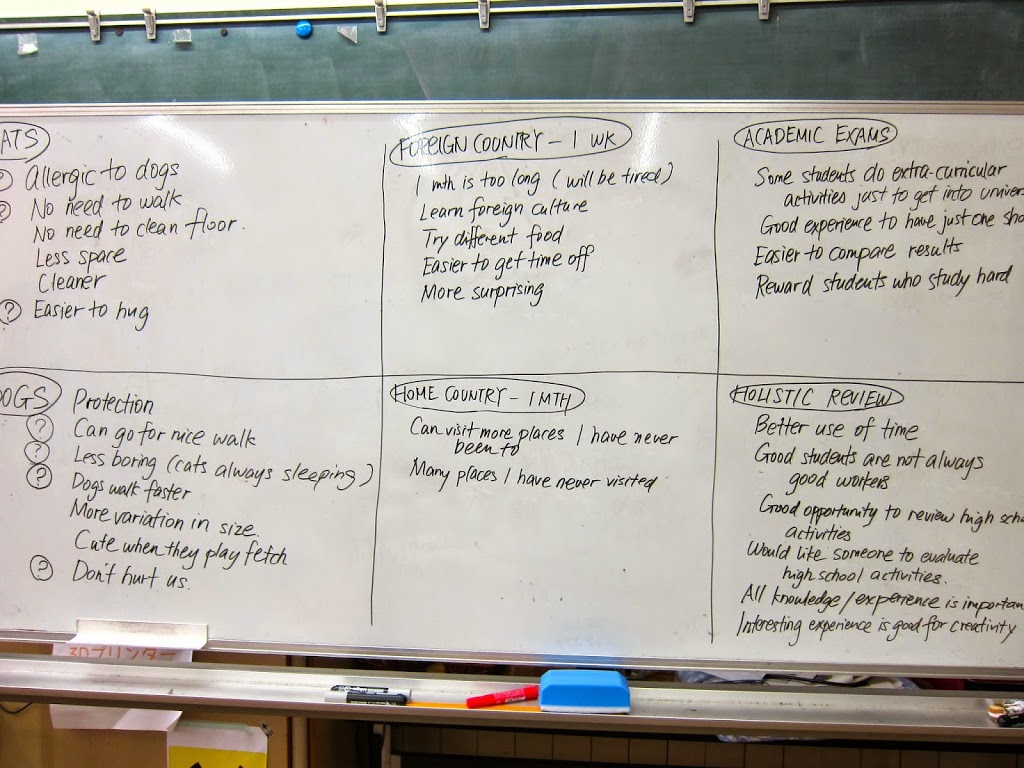 ATS
? Allergic to dogs
? No need to walk
No need to clean floor.
Less space
Cleaner
? Easier to hug
FOREIGN COUNTRY - 1 WK
1 mth is too long (will be tired)
Learn foreign culture
Try different food
Easier to get time off
More surprising
ACADEMIC EXAMS
Some students do extra-curricular
activities just to get into univers
Good experience to have just one sho
Easier to compare results
Reward students who study hard
DOGS
Protection
? Can go for nice walk
? Less boring (cats always sleeping)
? Dogs walk faster
More variation in size.
Cute when they play fetch
? Don't hurt us.
HOME COUNTRY - 1 MTH
Can visit more places I have never
been to
Many places I have never visited
HOLISTIC REVIEW
Better use of time
Good students are not always
good workers
Good opportunity to review high scho
activities
Would like someone to evaluate
high school activities.
All knowledge/experience is importan
Interesting experience is good for creativity
3Dプリンター